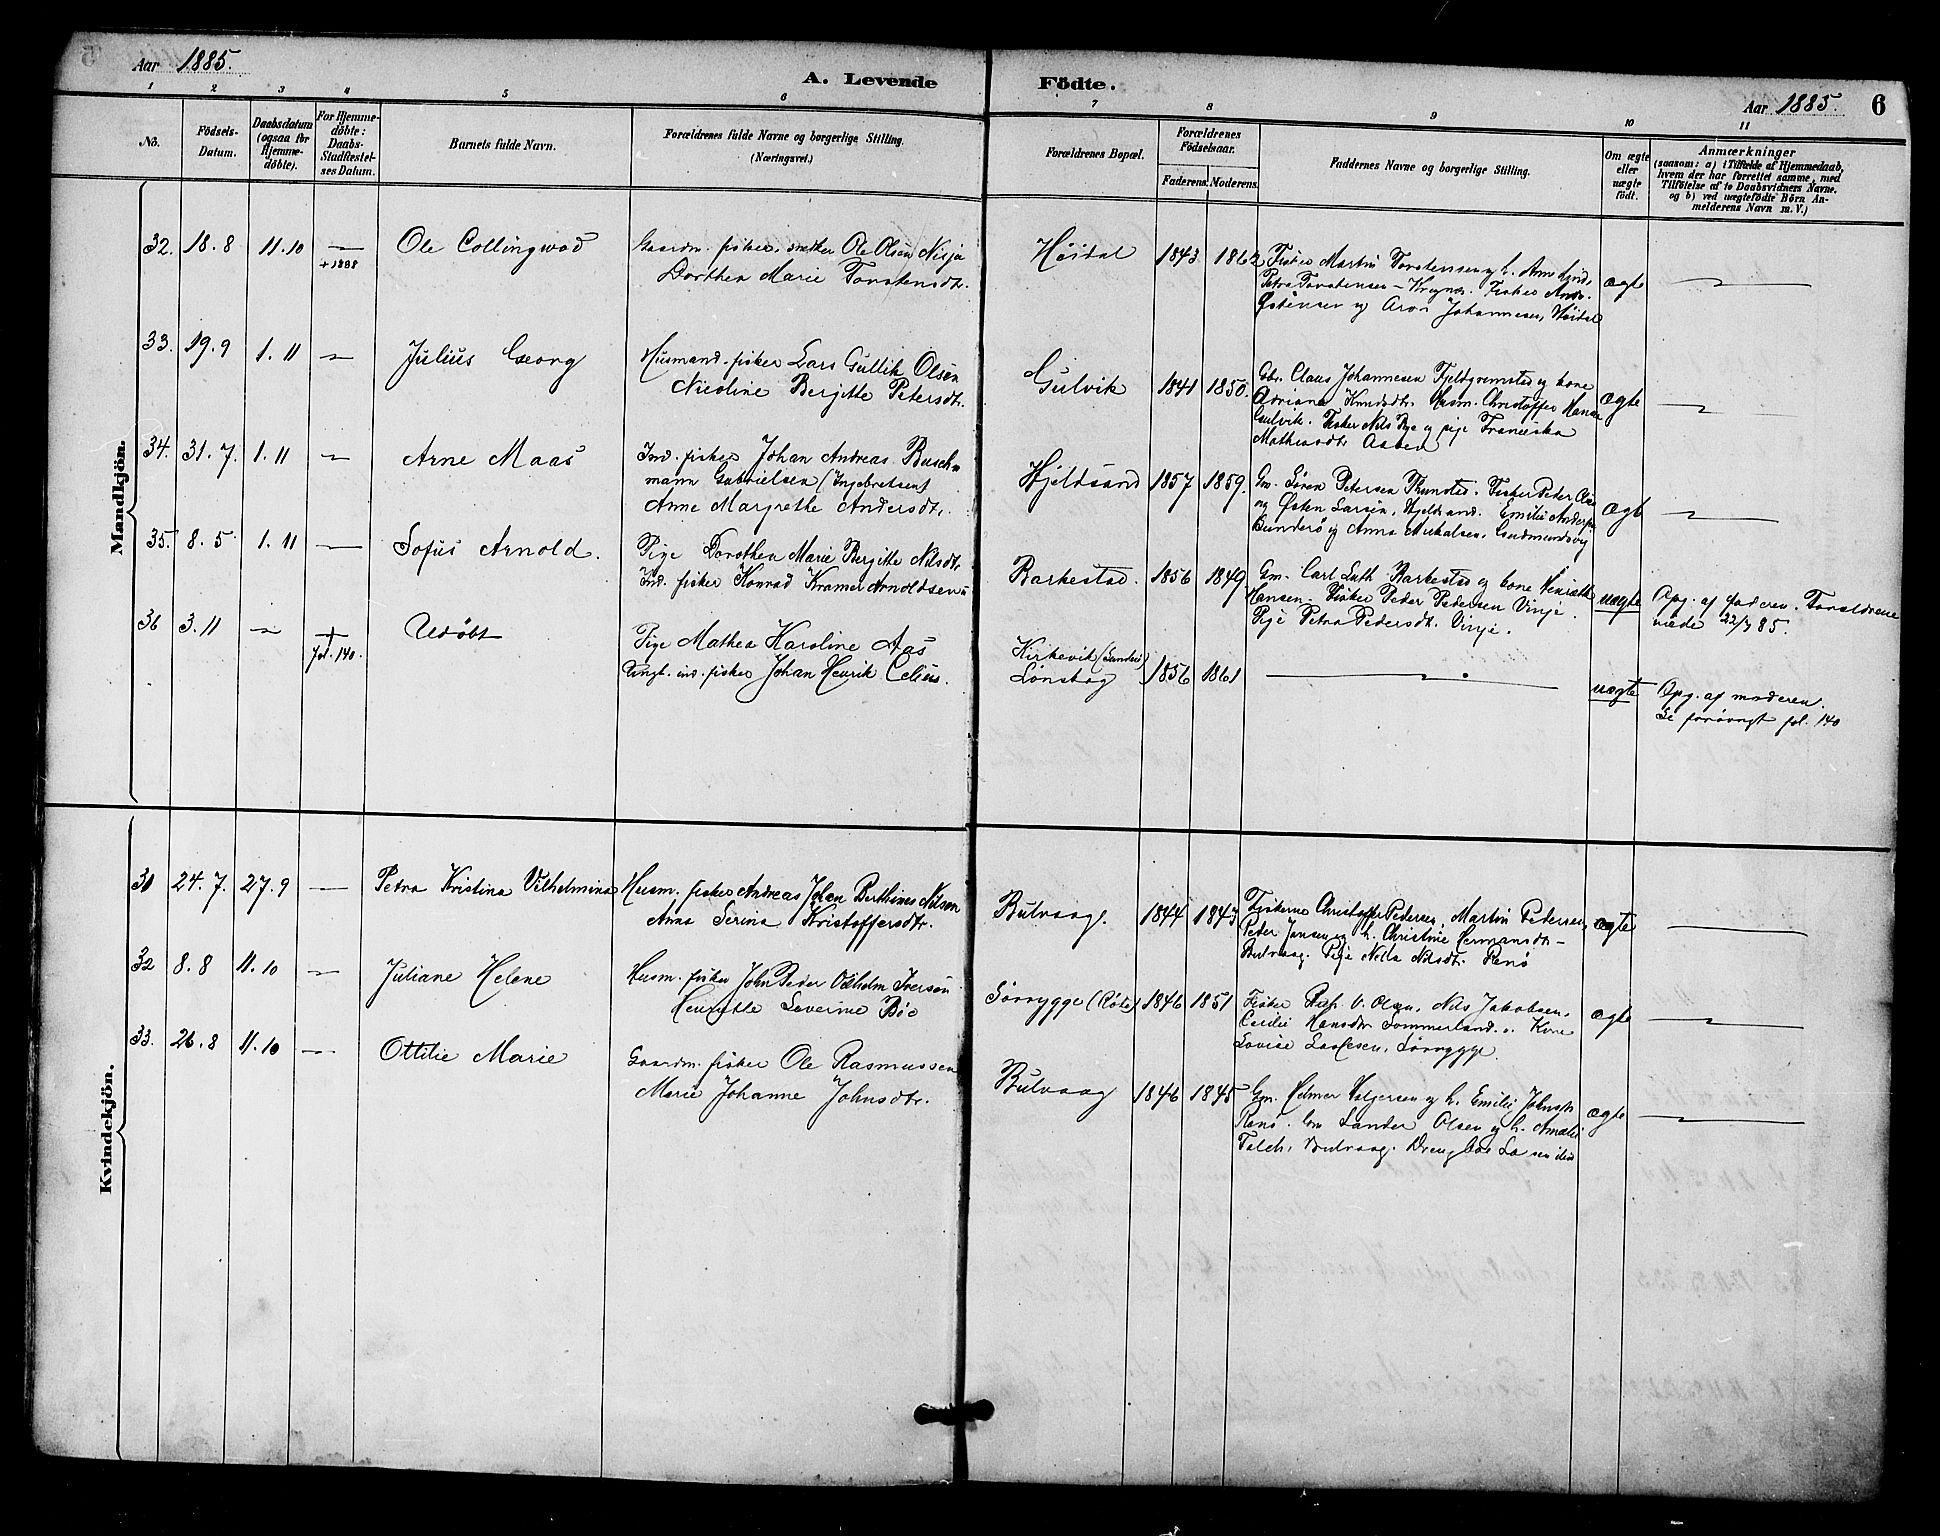 Aar 1885.
A. Levende Födte.
Aar 1885. 6
1 2 3 4 5 6 7 8 9 10 11
No.
Födsels-Datum.
Daabsdatum (ogsaa for Hjemme-döbte).
For Hjemme-döbte: Daabs-Stadfæstel-ses Datum.
Barnets fulde Navn.
Forældrenes fulde Navne og borgerlige Stilling.
(Næringsvei.)
Forældrenes Bopæl.
Forældrenes Födselsaar.
Faderens. Moderens.
Faddernes Navne og borgerlige Stilling.
Om ægte eller uægte födt.
Anmærkninger
(saasom: a) i Tilfælde af Hjemmedaab,
hvem der har forrettet samme, med
Tilföielse af to Daabsvidners Navne.
og b) ved uægtefödte Börn An-
melderens Navn m. V.)
Mandkjön.
32. 18.8 11.10 — +1888 Ole Collingwod
Gaardm. fisker Ole Olsen Nisja
Dorthea Marie Torstensdtr.
Höidal 1843 1862
Fisker Martin Torstensen og h. Anne
Petra Torstensen - Fisker
Østensen og Aron Johannesen, Höidal
ægte —
33. 19.9 1.11 — Julius Georg
Husmand fisker Lars Gullik Olsen
Nicoline Bergitte Petersdtr.
Gulvik 1841 1850.
Gbr. Claus Johannesen Fjeldgremstad og kone
Adriana Knudsdtr. Husm. Christoffer Hansen
Gulvik. Fisker Nils og pige Franciska
Mathisdtr Aasen
ægte —
34. 31.7. 1.11 — Arne Maas
Ind. fisker Johan Andreas Busch-
mann Gabrielsen (Ingebretsen)
Anne Margrethe Andersdtr.
Hjeldsand 1857 1859.
Gm. Sören Petersen Fisker Peder
og Østen Larsen, Hjeldsand. Emilie
og Anna
ægte —
35. 8.5 1.11 — Sofus Arnold.
Pige Dorothea Marie Bergitte Nilsdtr.
Ind. fisker Konrad Kramer Arnoldsen
Barkestad. 1856 1849
Gm. Carl Luth Barkestad og kone
Hansen. Fisker Peder Pedersen Vinje.
Pige Petra Pedersdtr. Vinje.
uægte
Opg. af faderen. Forældrene
22/7 85.
36 3.11 — + fol. 140. Udøbt
Pige Mathea Karoline Aas
Ungk. ind. fisker Johan Henrik Celius.
Kirkevik (Sandø)
Lønskog 1856 1861 —
uægte
Opg. af moderen.
Se forøvrigt fol. 140
Kvindekjön.
31 24.7. 27.9 — Petra Kristina Vilhelmina
Husm. fisker Andreas Johan Berthines Nilsen
Anna Serina Kristoffersdtr.
Butvaag. 1844 1843
Fiskerne Christoffer Pedersen, Martin Pedersen,
Peder Jansen og h. Christine Hermansdtr -
Butvaag. Pige Nella Nilsdtr. Ranø
ægte —
32 8.8 11.10 — Juliane Helene
Husm. fisker John Peder Vilhelm Iversen
Henriette Severine Böe
Sörrygge 1846 1851
Fisker O. Olsen, Nils Jakobsen,
Hansdtr Sommerland. Kone
Lovise Sörrygge.
ægte —
33. 26.8 11.10 — Ottilie Marie
Gaardm. fisker Ole Rasmussen
Marie Johanne Johnsdtr.
Butvaag 1846 1845
Gm. Helmer Holgersen og h. Emilie Johnsdtr
Ranö. Gm Sander Olsen og h. Amalie
Falch, Butvaag.
ægte —